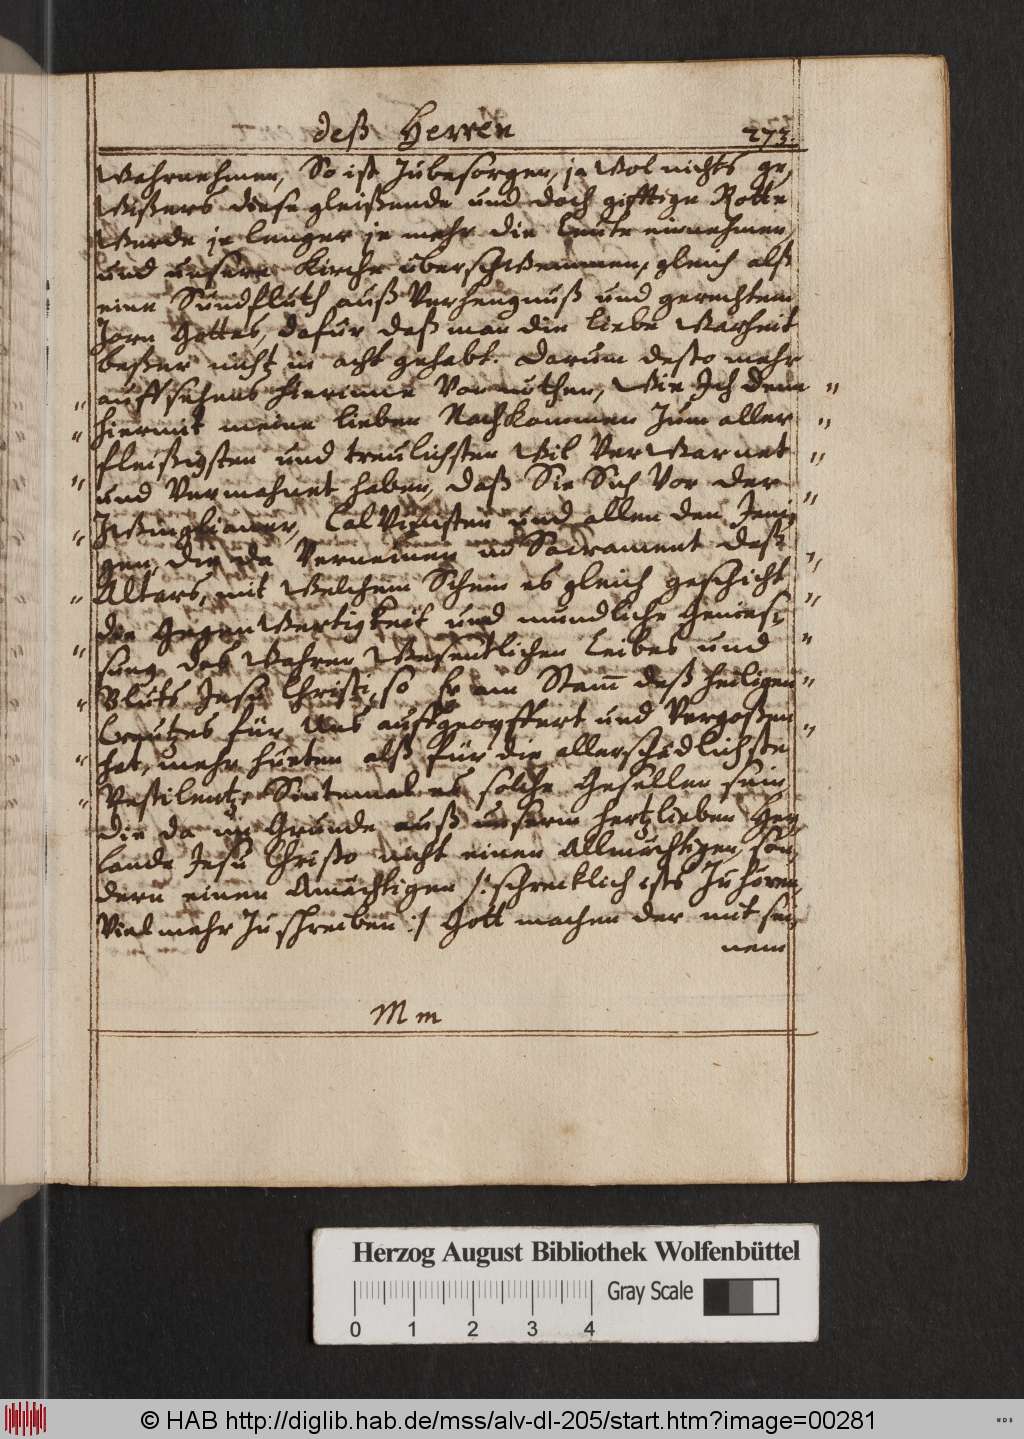 deß Herren
273.
Wahrnehmen, So ist Zubesorgen, ja Wol nichts ge,
Wißers diese gleißende und doch gifftige Rotte
Werde je langer je mehr die Leute einnehmen,
und unsere Kirche uberschWemmen, gleich alß
eine Sündfluth auß Verhengnuß und gerechtem
Zorn Gottes, dafür daß man die liebe Warheit
beßer nicht in acht gehabt. Darum desto mehr
auffsehens hierinne Vonnöthen, Wie Ich denn
hiermit meine lieben Nachkommen Zum aller
fleißigsten und treulichsten Wil VerWarnet
und Vermahnet haben, daß Sie Sich Vor der
Zwinglianer, CalVinisten und allen den Jeni,
gen, die da Verneinen im Sacrament deß
Altars, mit Welchem Schein es gleich geschicht
die GegenWertigkeit und mundliche Genies,
sung des Wahren Wesentlichen Leibes und
Bluts Jesu Christi, so Er am Stam̄ deß heiligen
Creutzes für Uns auffgeopffert und Vergoßen
hat, mehr hueten alß für die allerschedlichste
Pestilentz, Sintemal es solche Gesellen sein,
die da im Grunde auß unserm hertzlieben Hey
lande Jesu Christo nicht einen Allmächtigen, son,
dern einen Amächtigen /: schrecklich ists Zu hören,
Viel mehr Zu schreiben :/ Gott machen der mit sei,
nem
M m
Herzog August Bibliothek Wolfenbüttel
Gray Scale
0 1 2 3 4
© HAB http://diglib.hab.de/mss/alv-dl-205/start.htm?image=00281
WDB